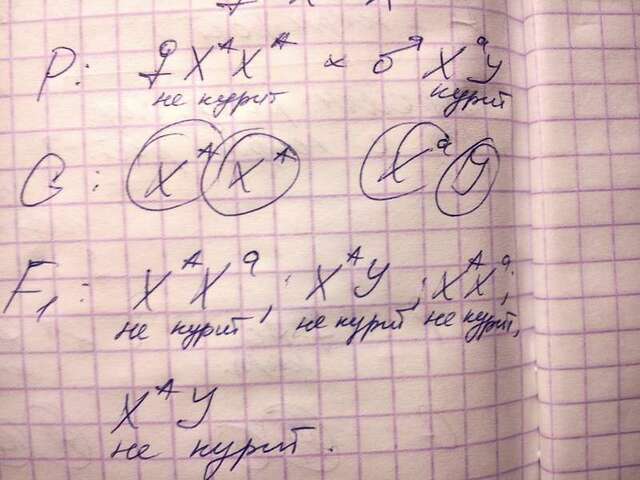 P: ♀ XᴬXᴬ × ♂ XᵃY
не курит курит
G: Xᴬ Xᴬ Xᵃ Y
F₁: XᴬXᵃ; XᴬY; XᴬXᵃ;
не курит, не курит не курит,
XᴬY
не курит.